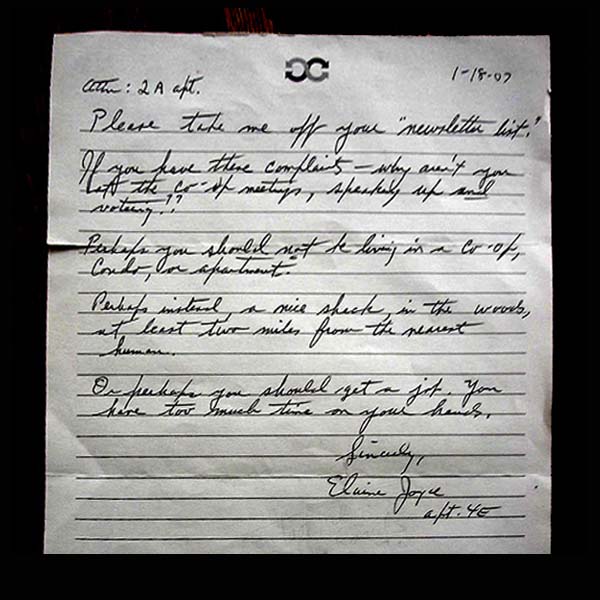 1-18-07
Attn: 2A apt.
Please take me off your "newsletter list."
If you have these complaints – why aren't you
at the co-op meetings, speaking up and
voting??
Perhaps you should not be living in a co-op,
Condo, or apartment.
Perhaps instead, a nice shack, in the woods,
at least two miles from the nearest
human.
Or perhaps you should get a job. You
have too much time on your hands.
Sincerely,
Elaine Joyce
apt. 4E